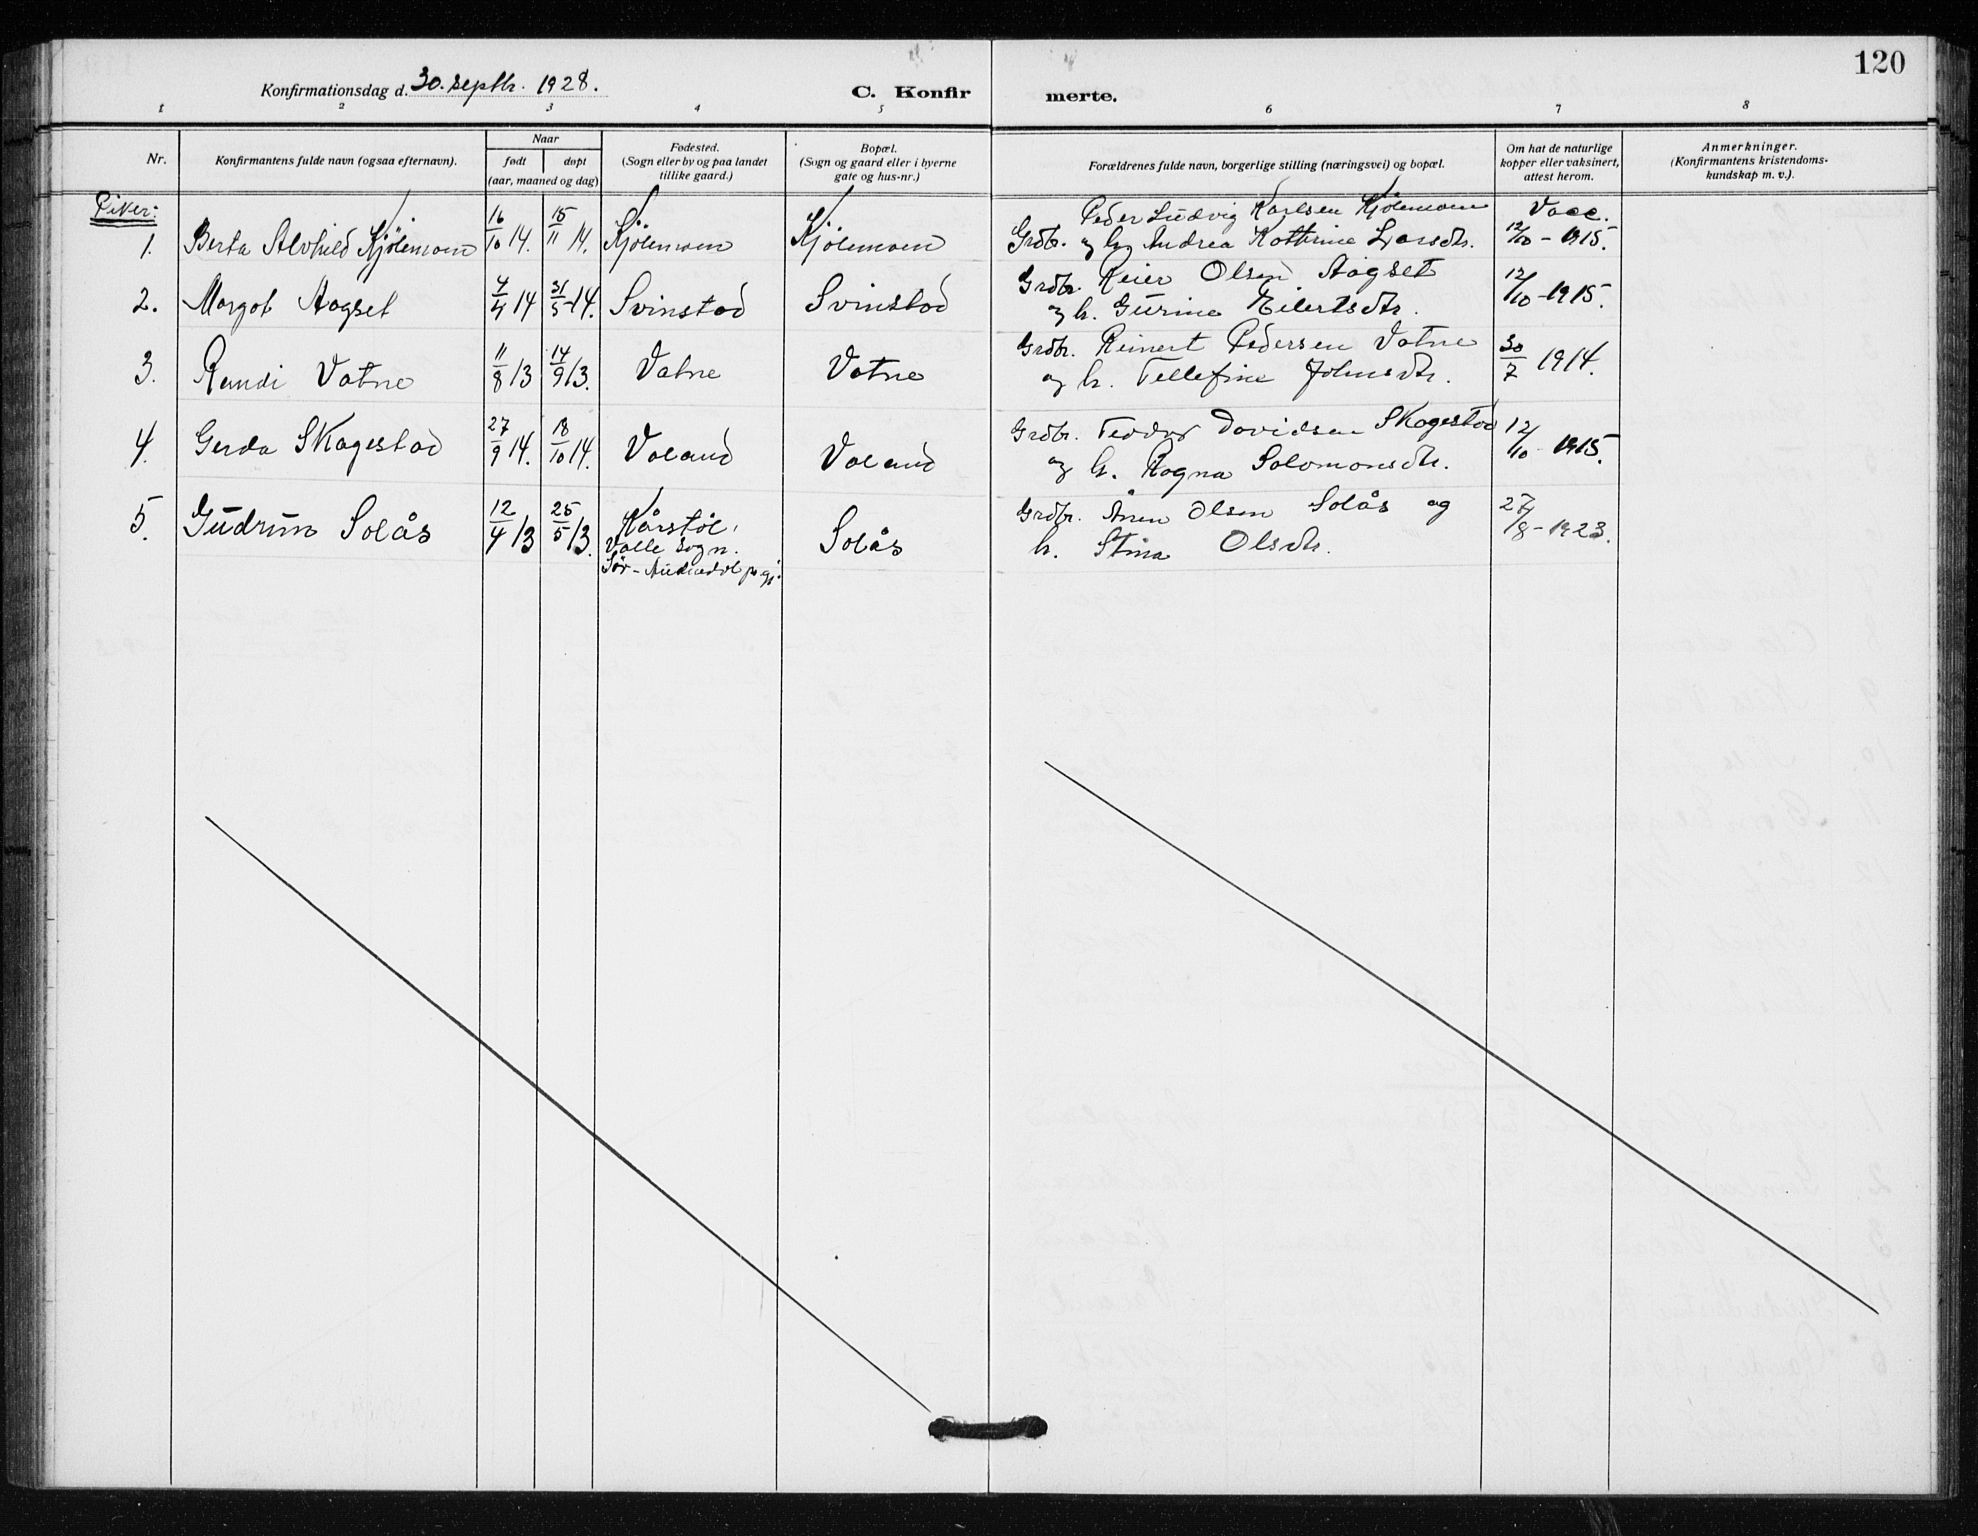 120
Konfirmationsdag d. 30. septbr. 1928.
C. Konfirmerte.
1 2 3 4 5 6 7 8
Nr.
Konfirmantens fulde navn (ogsaa efternavn).
Naar
født
døpt
(aar, maaned og dag)
Fødested.
(Sogn eller by og paa landet
tillike gaard.)
Bopæl.
(Sogn og gaard eller i byerne
gate og hus-nr.)
Forældrenes fulde navn, borgerlige stilling (næringsvei) og bopæl.
Om hat de naturlige
kopper eller vaksinert,
attest herom.
Anmerkninger.
(Konfirmantens kristendoms-
kundskap m. v.).
Piker:
1. Berta Alvhild Kjölemoen 16/10 14. 15/11 14. Kjölemoen Kjölemoen
Peder Ludvig Karlsen Kjölemoen
Grdbr. og h. Andrea Kathrine Larsdtr.
Vacc.
12/10 - 1915.
2. Margot Aagset 7/4 14 31/5 14. Svinstad Svinstad
Grdbr. Reier Olsen Aagset
og h. Gurine Eilertsdtr.
12/10 - 1915.
3. Randi Vatne 11/8 13 14/9 13. Vatne Vatne
Grdbr. Reinert Pedersen Vatne
og h. Tellefine Johnsdtr.
30/7 1914.
4. Gerda Skagestad 27/9 14. 18/10 14. Valand Valand
Grdbr. Teodor Davidsen Skagestad
og h. Ragna Salomonsdtr.
12/10 - 1915.
5. Gudrun Solås 12/4 13 25/5 13.
Kårstöl,
Valle sogn.
Sör-Audnedal pr.gj.
Solås
Grdbr. Ånen Olsen Solås og
h. Stina Olsdtr.
27/8 - 1923.